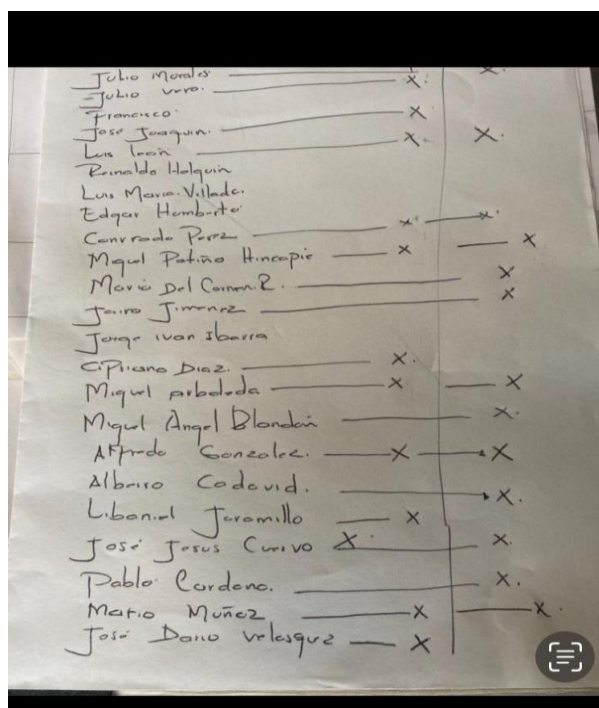 Julio Morales ——— x. x.
Julio Vera. ——— x.
Francisco. ——— x
José Joaquin. ——— x. x.
Luis León
Reinaldo Holguin
Luis Maria. Villada.
Edgar Humberto
Conrrado Perez ——— x. ——— x.
Miguel Patiño Hincapie ——— x ——— x
Maria Del Carmen. R. ——— x
Jairo Jimenez ——— x
Jorge ivan Ibarra
Cipriano Diaz. ——— x.
Miguel arboleda ——— x ——— x
Miguel Angel Blandón ——— x.
Alfredo Gonzalez. ——— x ——— x
Albeiro Cadavid. ——— x.
Libaniel Jaramillo ——— x
José Jesus Cuervo x. ——— x.
Pablo Cardona. ——— x.
Mario Muñoz ——— x ——— x.
José Dario Velasquez ——— x